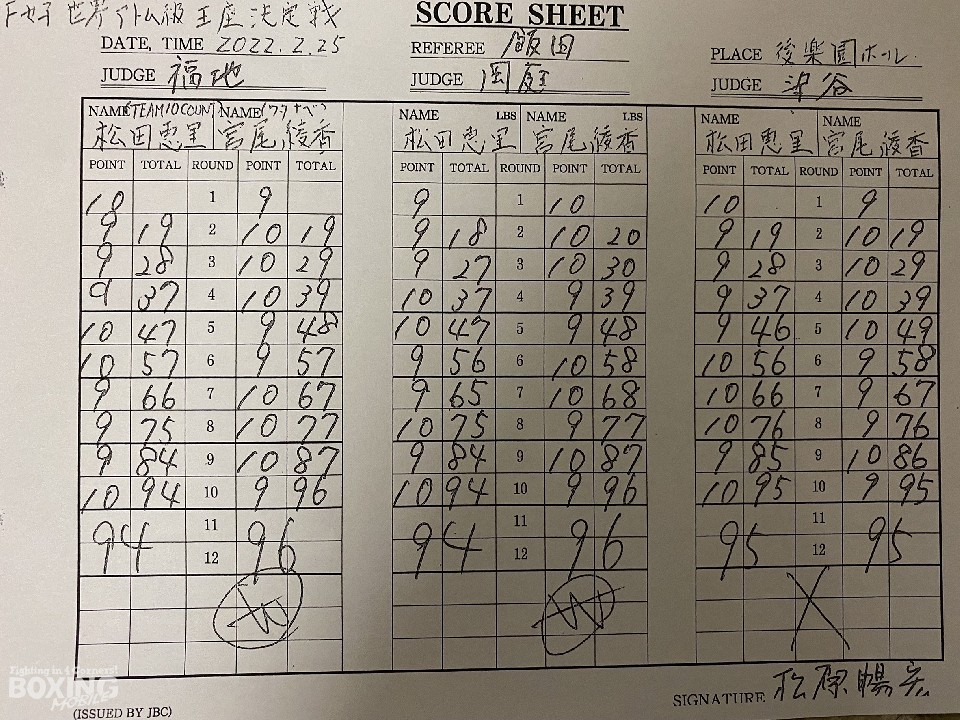 F女子世界アトム級王座決定戦
SCORE SHEET
DATE, TIME 2022.2.25 REFEREE 飯田 PLACE 後楽園ホール.
JUDGE 福地 JUDGE 岡庭 JUDGE 染谷
NAME (TEAM10COUNT) NAME (ワタナベ) NAME LBS NAME LBS NAME NAME
松田恵里 宮尾綾香 松田恵里 宮尾綾香 松田恵里 宮尾綾香
POINT TOTAL ROUND POINT TOTAL POINT TOTAL ROUND POINT TOTAL POINT TOTAL ROUND POINT TOTAL
10 1 9 9 1 10 10 1 9
9 19 2 10 19 9 18 2 10 20 9 19 2 10 19
9 28 3 10 29 9 27 3 10 30 9 28 3 10 29
9 37 4 10 39 10 37 4 9 39 9 37 4 10 39
10 47 5 9 48 10 47 5 9 48 9 46 5 10 49
10 57 6 9 57 9 56 6 10 58 10 56 6 9 58
9 66 7 10 67 9 65 7 10 68 10 66 7 9 67
9 75 8 10 77 10 75 8 9 77 10 76 8 9 76
9 84 9 10 87 9 84 9 10 87 9 85 9 10 86
10 94 10 9 96 10 94 10 9 96 10 95 10 9 95
11 11 11
94 96 94 96 95 95
12 12 12
W W X
Fighting in 4 Corners!
BOXING
MOBILE
SIGNATURE 松原暢宏
(ISSUED BY JBC)